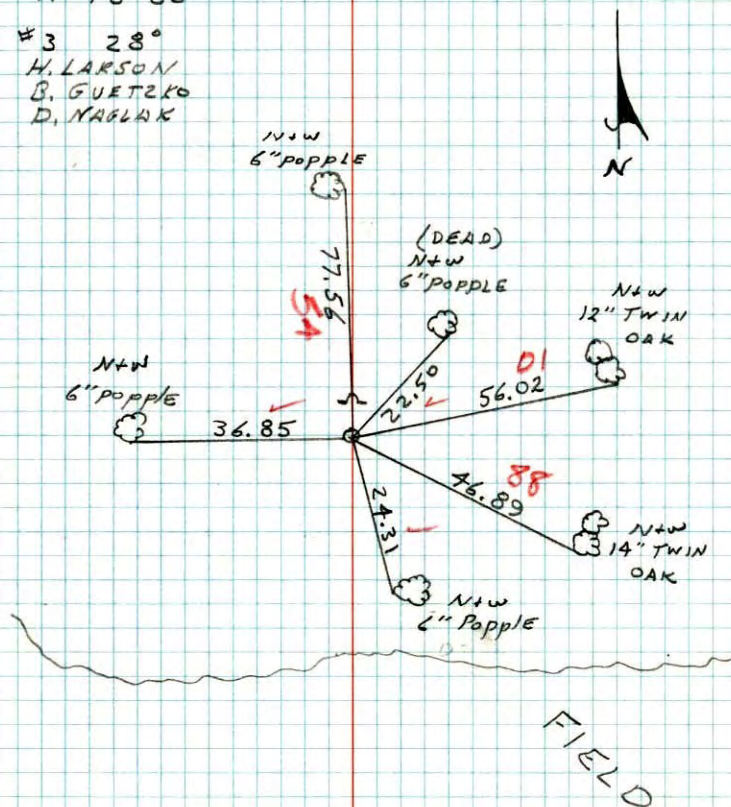 #3 28°
H. LARSON
B. GUETZKO
D. NAGLAK
N
N+W
6" POPPLE
77.56
54
(DEAD)
N+W
6" POPPLE
22.50
N+W
12" TWIN
OAK
01
56.02
N+W
6" POPPLE
36.85
88
46.89
N+W
14" TWIN
OAK
24.31
N+W
6" POPPLE
FIELD